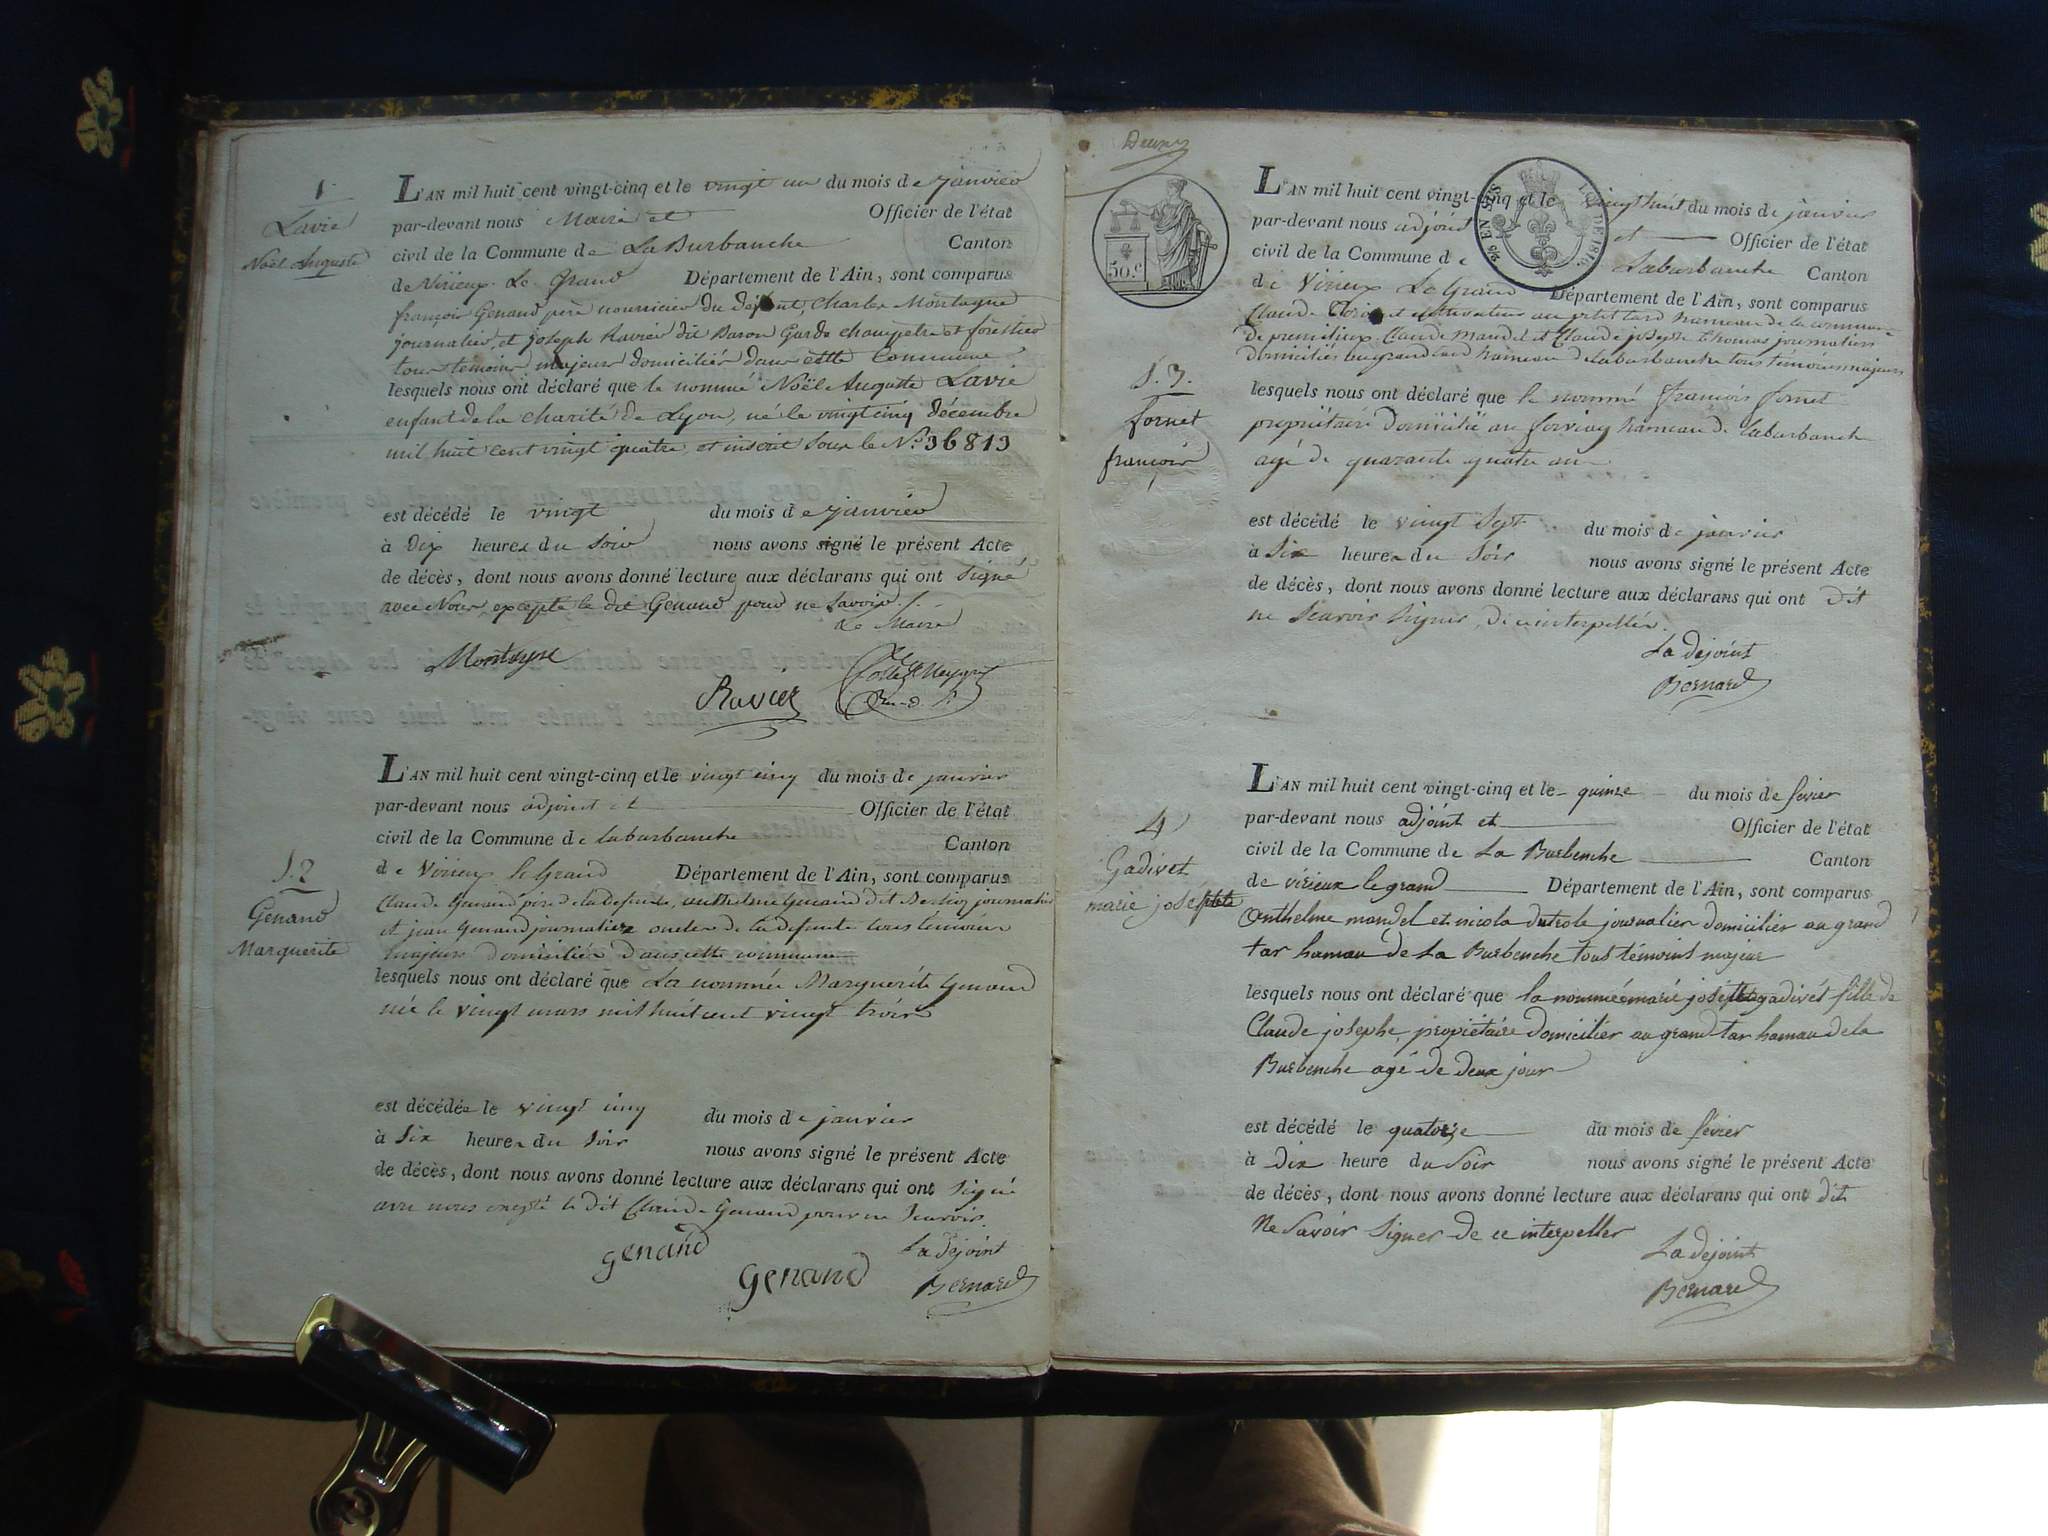 1.
Lavie
Noël Auguste
L'AN mil huit cent vingt-cinq et le vingt un du mois de janvier
par-devant nous Maire et Officier de l'état
civil de la Commune de La Burbanche Canton
de Virieux Le Grand Département de l'Ain, sont comparus
françois Genand père nourricier du défunt, Charles Montagne
journalier, et joseph Ravier dit Baron Garde champetre et forestier
tous temoins majeurs domiciliés dans cette Commune
lesquels nous ont déclaré que le nommé Noël Auguste Lavie
enfant de la charité de Lyon, né le vingt cinq décembre
mil huit cent vingt quatre et inscrit sous le N.º 36813
est décédé le vingt du mois de janvier
à Dix heures du Soir nous avons signé le présent Acte
de décès, dont nous avons donné lecture aux déclarans qui ont Signé
avec Nous, excepté le dit Genand pour ne Savoir./.
Le Maire
Montagne
Ravier
S. 2
Genand
Marguerite
L'AN mil huit cent vingt-cinq et le vingt cinq du mois de janvier
par-devant nous adjoint et Officier de l'état
civil de la Commune de laburbanche Canton
de Virieux le Grand Département de l'Ain, sont comparus
Claude Genand père de la defunte, anthelme Genand dit Berlioz journalier
et jean Genand journalier oncles de la defunte tous témoins
majeurs domiciliés dans cette commune
lesquels nous ont déclaré que La nommée Marguerite Genand
née le vingt mars mil huit cent vingt trois
est décédée le vingt cinq du mois de janvier
à Six heures du Soir nous avons signé le présent Acte
de décès, dont nous avons donné lecture aux déclarans qui ont Signé
avec nous excepté le dit Claude Genand pour ne Scavoir.
genand
Genand
La dejoint
Bernard
Deux
50.c
EN SUS
LOI DE 1816.
S. 3.
fornet
françois
L'AN mil huit cent vingt-cinq et le vingt huit du mois de janvier
par-devant nous adjoint et Officier de l'état
civil de la Commune de Laburbanche Canton
de Virieux Le Grand Département de l'Ain, sont comparus
Claude cultivateur au petit tard hameau de la commune
de premilieux. Claude Mandel et Claude joseph thomas journaliers
domiciliés au grand tard hameau de laburbanche tous témoins majeurs
lesquels nous ont déclaré que le nommé françois fornet
propriétaire domicilié au hameau de laburbanche
agé de quarante quatre ans
est décédé le vingt Sept du mois de janvier
à Six heures du Soir nous avons signé le présent Acte
de décès, dont nous avons donné lecture aux déclarans qui ont dit
ne Scavoir Signer, de ce interpellés.
La dejoint
Bernard
4
Gadivet
marie josephte
L'AN mil huit cent vingt-cinq et le quinze du mois de févier
par-devant nous adjoint et Officier de l'état
civil de la Commune de La Burbenche Canton
de virieux le grand Département de l'Ain, sont comparus
Anthelme mandel et nicola dutrole journalier domicilier au grand
tar hamau de La Burbenche tous témoins majeur
lesquels nous ont déclaré que la nommée marie josephte gadivet fille de
Claude josephe, propietaire domicilier au grand tar hamau de la
Burbenche agé de deux jour
est décédé le quatorze du mois de févier
à dix heure du Soir nous avons signé le présent Acte
de décès, dont nous avons donné lecture aux déclarans qui ont dit
Ne Savoir Signer de ce interpeller
La dejoint
Bernard